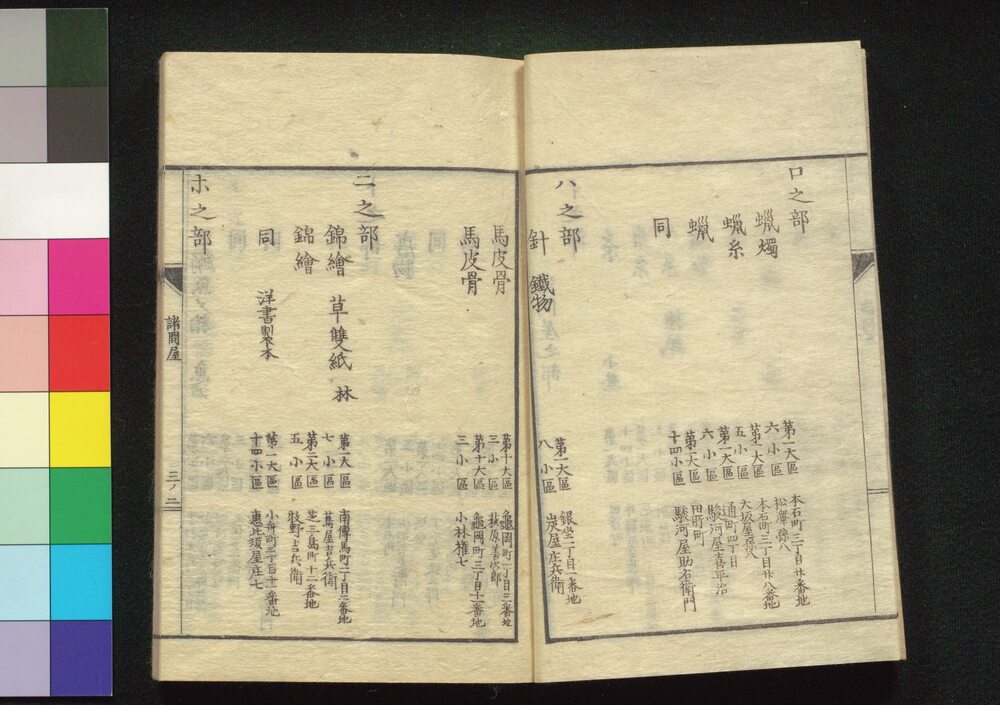 ロ之部
蝋燭
第一大區
六小區
本石町三丁目廿番地
松澤孫八
蝋糸
第一大區
五小區
本石町三丁目廿八番地
大坂屋
蝋
第一大區
六小區
通町四丁目
駿河屋喜平治
同
第一大區
十四小區
田所町
駿河屋助右衛門
ハ之部
針 鐵物
第一大區
八小區
銀坐二丁目一番地
炭屋庄兵衛
馬皮骨
第十大區
三小區
龜岡町一丁目三番地
荻原善次郎
馬皮骨
第十大區
三小區
龜岡町三丁目十一番地
小林権七
ニ之部
錦繪 草雙紙 林
第一大區
七小區
南傳馬町一丁目二番地
蔦屋吉兵衛
錦繪
第二大區
五小區
芝三島町十二番地
牧野吉兵衛
同 洋書製本
第一大區
十四小區
小舟町三丁目十一番地
惠比須屋庄七
ホ之部
諸問屋
三ノ二